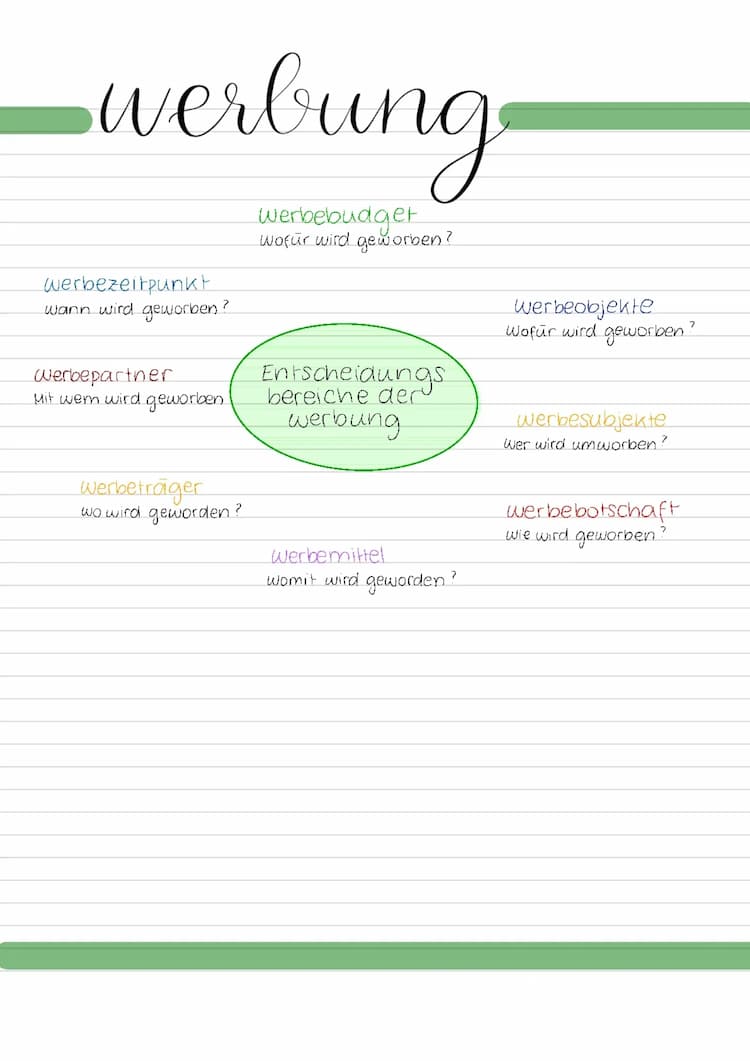 werbung
werbebudget
Wofür wird geworben?
werbezeitpunkt
wann wird geworben?
werbeobjekte
Wofür wird geworben?
Entscheidungs
bereiche der
werbung
werbepartner
Mit wem wird geworben
werbesubjekte
Wer wird umworben?
werbeträger
wo wird geworden?
werbebotschaft
wie wird geworben?
werbemittel
womit wird geworden?